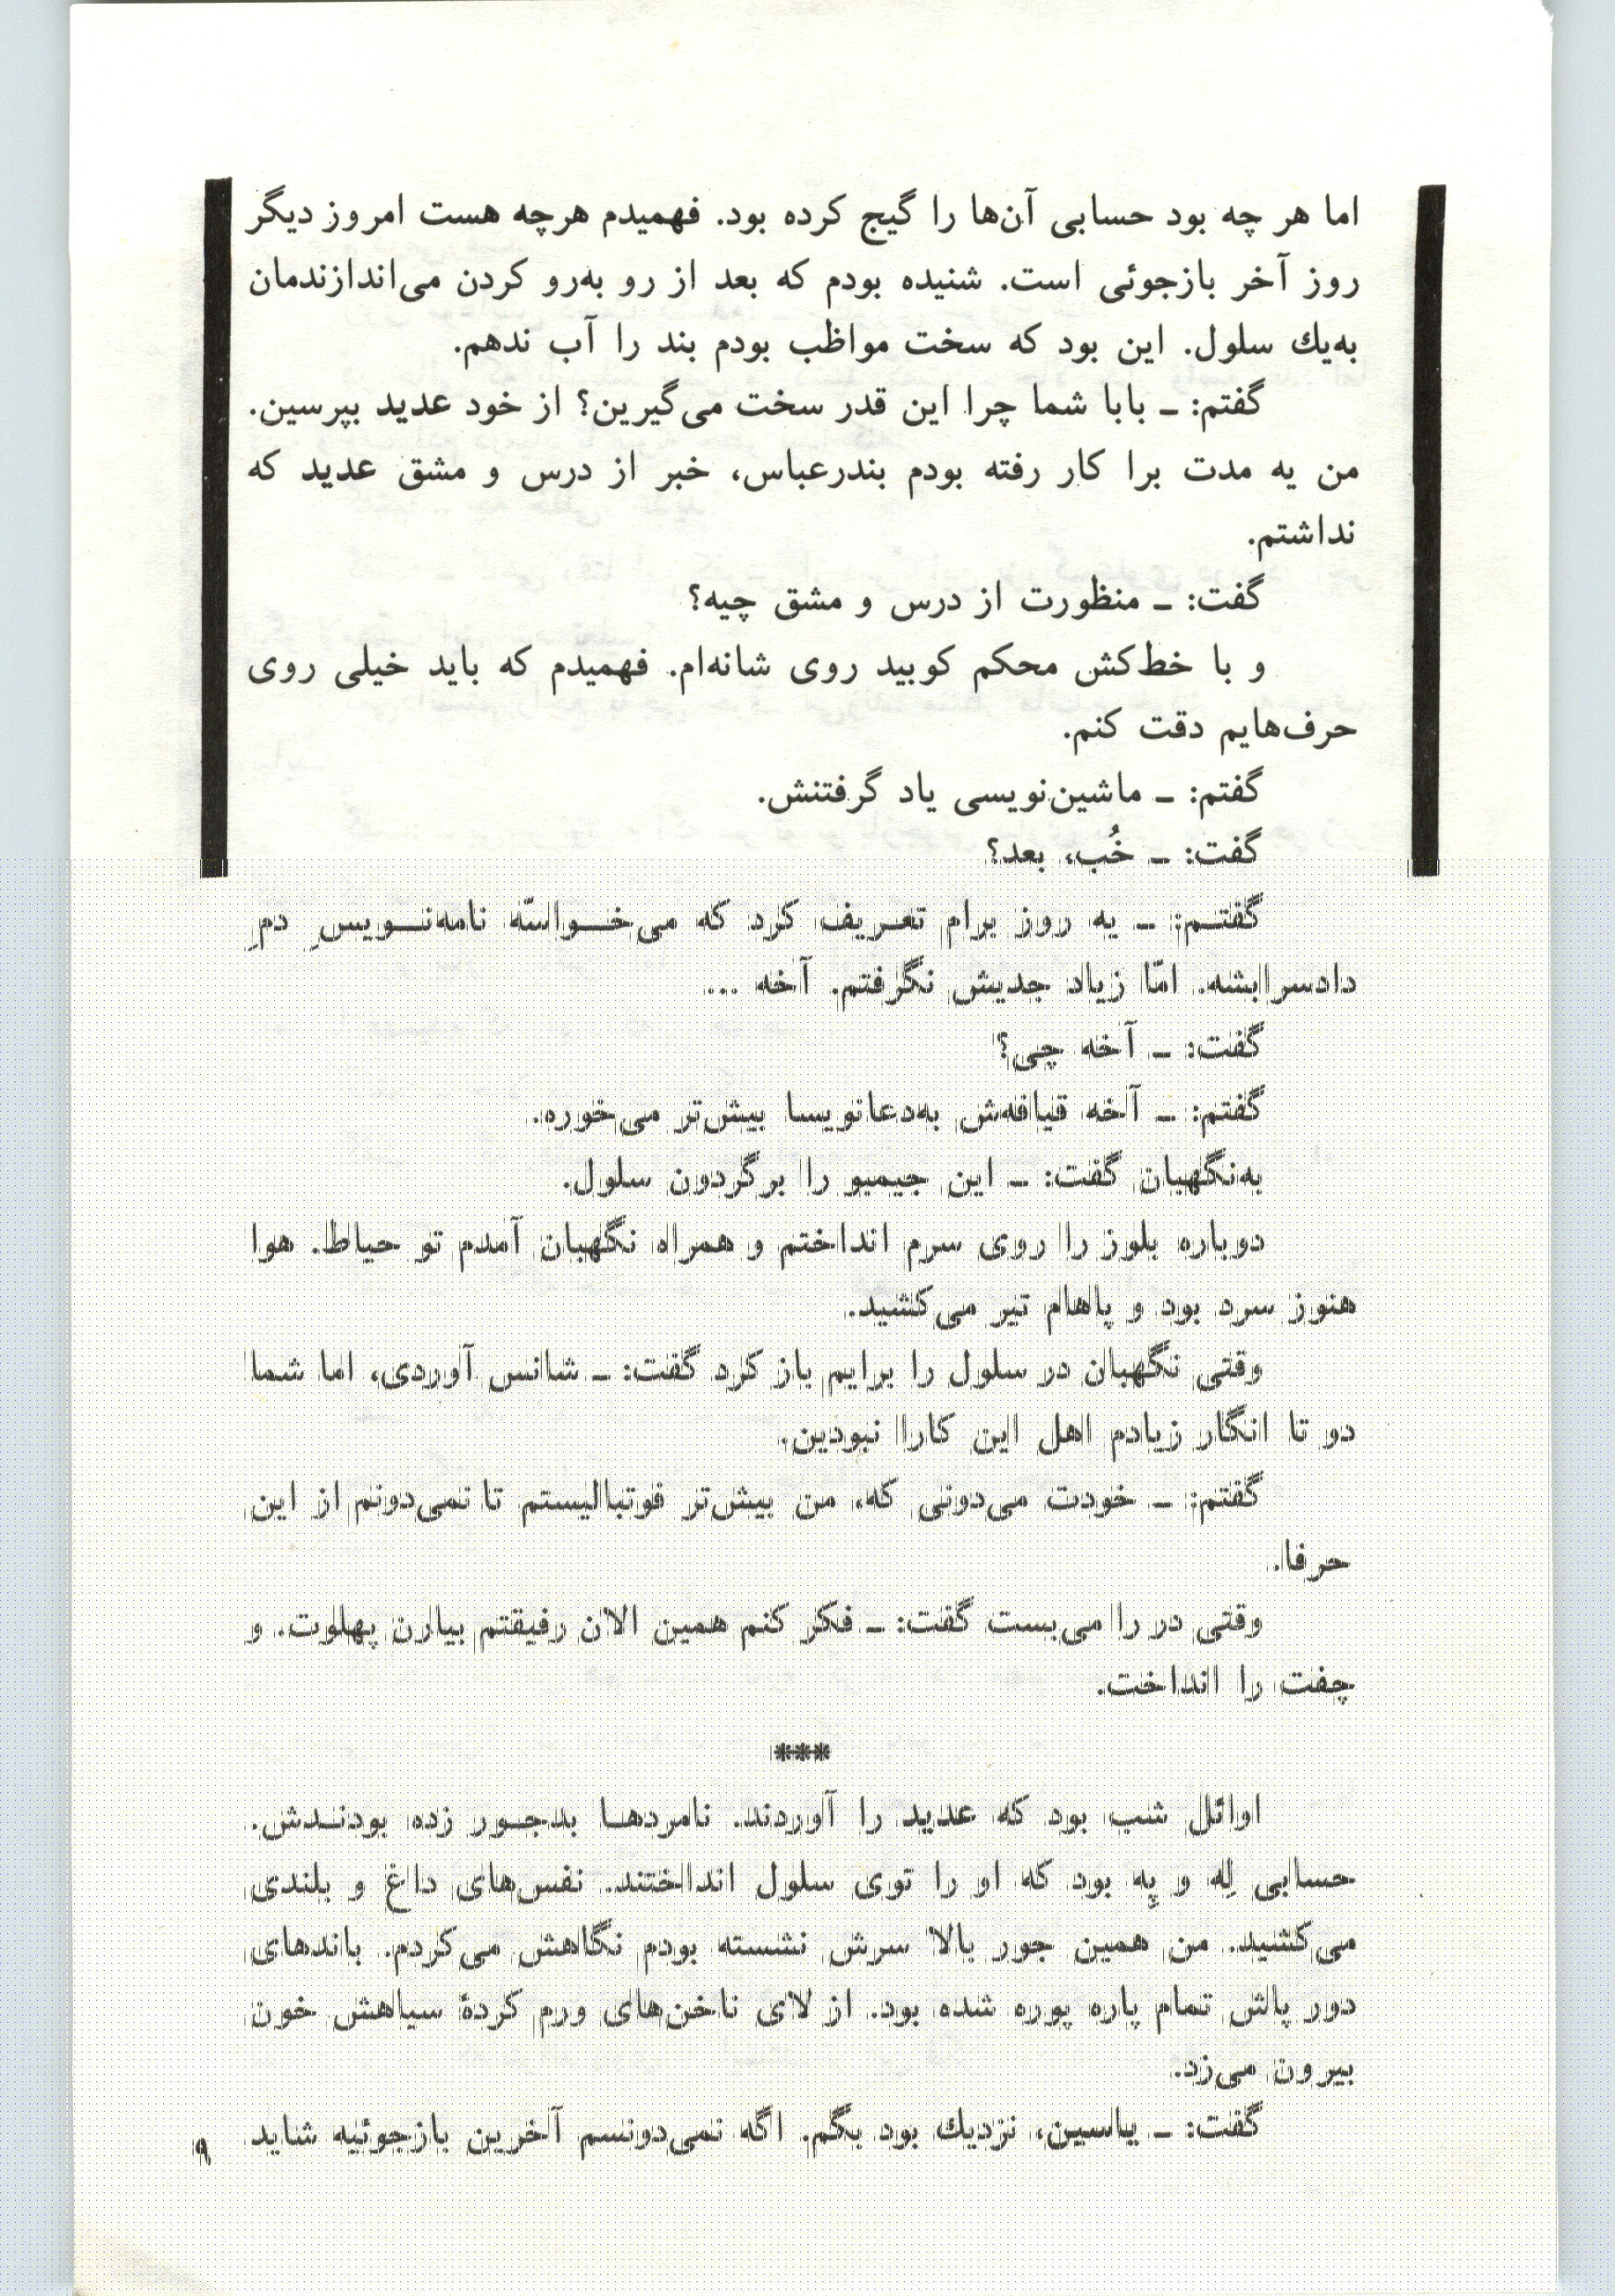 اما هر چه بود حسابی آن‌ها را گیج کرده بود. فهمیدم هرچه هست امروز دیگر
روز آخر بازجوئی است. شنیده بودم که بعد از رو به‌رو کردن می‌اندازندمان
به‌یك سلول. این بود که سخت مواظب بودم بند را آب ندهم.
گفتم: ـ بابا شما چرا این قدر سخت می‌گیرین؟ از خود عدید بپرسین.
من یه مدت برا کار رفته بودم بندرعباس، خبر از درس و مشق عدید که
نداشتم.
گفت: ـ منظورت از درس و مشق چیه؟
و با خط‌کش محکم کوبید روی شانه‌ام. فهمیدم که باید خیلی روی
حرف‌هایم دقت کنم.
گفتم: ـ ماشین‌نویسی یاد گرفتنش.
گفت: ـ خُب، بعد؟
گفتـم: ـ یه روز برام تعـریف کرد که می‌خـواسّه نامه‌نـویسِ دمِ
دادسرا بشه. امّا زیاد جدیش نگرفتم. آخه ...
گفت: ـ آخه چی؟
گفتم: ـ آخه قیافه‌ش به‌دعانویسا بیش‌تر می‌خوره.
به‌نگهبان گفت: ـ این جیمبو را برگردون سلول.
دوباره بلوز را روی سرم انداختم و همراه نگهبان آمدم تو حیاط. هوا
هنوز سرد بود و پاهام تیر می‌کشید.
وقتی نگهبان در سلول را برایم باز کرد گفت: ـ شانس آوردی، اما شما
دو تا انگار زیادم اهل این کارا نبودین.
گفتم: ـ خودت می‌دونی که، من بیش‌تر فوتبالیستم تا نمی‌دونم از این
حرفا.
وقتی در را می‌بست گفت: ـ فکر کنم همین الان رفیقتم بیارن پهلوت. و
چفت را انداخت.
***
اوائل شب بود که عدید را آوردند. نامردهـا بدجـور زده بودنـدش.
حسابی لِه و پِه بود که او را توی سلول انداختند. نفس‌های داغ و بلندی
می‌کشید. من همین جور بالا سرش نشسته بودم نگاهش می‌کردم. باندهای
دور پاش تمام پاره پوره شده بود. از لای ناخن‌های ورم کردهٔ سیاهش خون
بیرون می‌زد.
گفت: ـ یاسین، نزدیك بود بگم. اگه نمی‌دونسم آخرین بازجوئیه شاید
۹